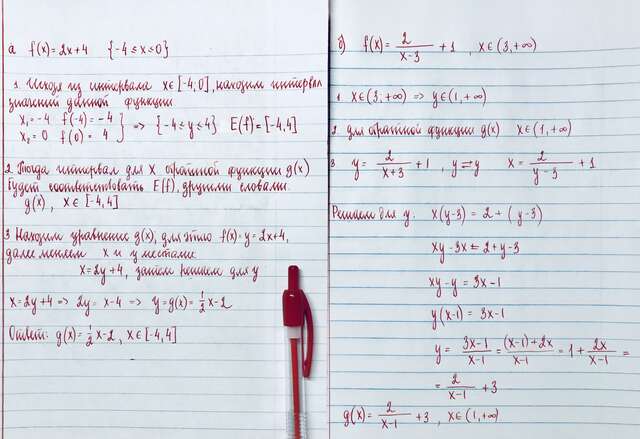 а. f(x) = 2x+4 {-4 ≤ x ≤ 0}
1. Исходя из интервала x ∈ [-4; 0], находим интервал
значений данной функции
x₁ = -4 f(-4) = -4
x₂ = 0 f(0) = 4 } => {-4 ≤ y ≤ 4} E(f) = [-4,4]
2. Тогда интервал для x обратной функции g(x)
будет соответствовать E(f), другими словами.
g(x), x ∈ [-4,4]
3 Находим уравнение g(x), для этого f(x) = y = 2x+4,
далее меняем x и y местами
x = 2y+4, затем решаем для y
x = 2y+4 => 2y = x-4 => y = g(x) = 1/2 x - 2
Ответ: g(x) = 1/2 x - 2, x ∈ [-4,4]
б) f(x) = 2/(x-3) + 1, x ∈ (3, +∞)
1. x ∈ (3; +∞) => y ∈ (1, +∞)
2. для обратной функции g(x) x ∈ (1, +∞)
3. y = 2/(x+3) + 1, y ⇄ y x = 2/(y-3) + 1
Решаем для y. x(y-3) = 2 + (y-3)
xy - 3x = 2 + y - 3
xy - y = 3x - 1
y(x-1) = 3x - 1
y = (3x-1)/(x-1) = ((x-1)+2x)/(x-1) = 1 + 2x/(x-1) =
= 2/(x-1) + 3
g(x) = 2/(x-1) + 3, x ∈ (1, +∞)